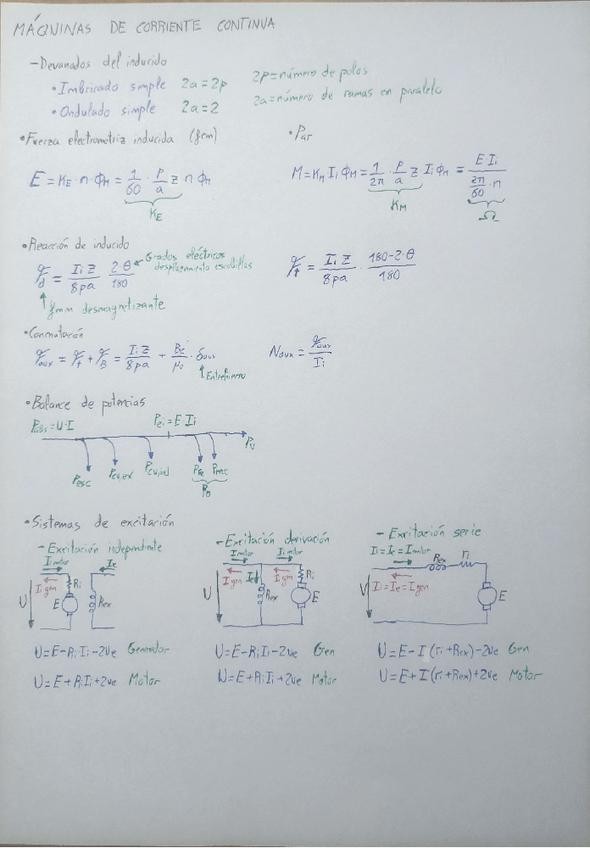 MÁQUINAS DE CORRIENTE CONTINUA
- Devanados del inducido
• Imbricado simple 2a = 2p
2p = número de polos
• Ondulado simple 2a = 2
2a = número de ramas en paralelo
• Fuerza electromotriz inducida (fem)
• Par
E = K_E · n · Φ_M = 1/60 · p/a z n Φ_M
K_E
M = K_M I_i Φ_M = 1/2π · p/a z I_i Φ_M = E I_i / (2π/60 · n)
K_M
Ω
• Reacción de inducido
F_d = I_i z / 8pa · 2·θ / 180
Grados eléctricos desplazamiento escobillas
fmm desmagnetizante
F_t = I_i z / 8pa · 180-2·θ / 180
• Conmutación
F_aux = F_t + F_B = I_i z / 8pa + B_c / μ_0 · δ_aux
Entrehierro
N_aux = F_aux / I_i
• Balance de potencias
P_abs = U·I
P_ei = E·I_i
P_u
P_exc
P_cu,ex
P_cu,ind
P_Fe
P_mec
P_0
• Sistemas de excitación
- Excitación independiente
I_i motor
I_e
I_i gen
R_i
U
E
R_ex
U = E - R_i I_i - 2u_e Generador
U = E + R_i I_i + 2u_e Motor
- Excitación derivación
I motor
I_i motor
I gen
I_e
I_i gen
R_i
U
R_ex
E
U = E - R_i I_i - 2u_e Gen
U = E + R_i I_i + 2u_e Motor
- Excitación serie
I_i = I_e = I motor
R_ex
r_i
I_i = I_e = I gen
V
E
U = E - I (r_i + R_ex) - 2u_e Gen
U = E + I (r_i + R_ex) + 2u_e Motor